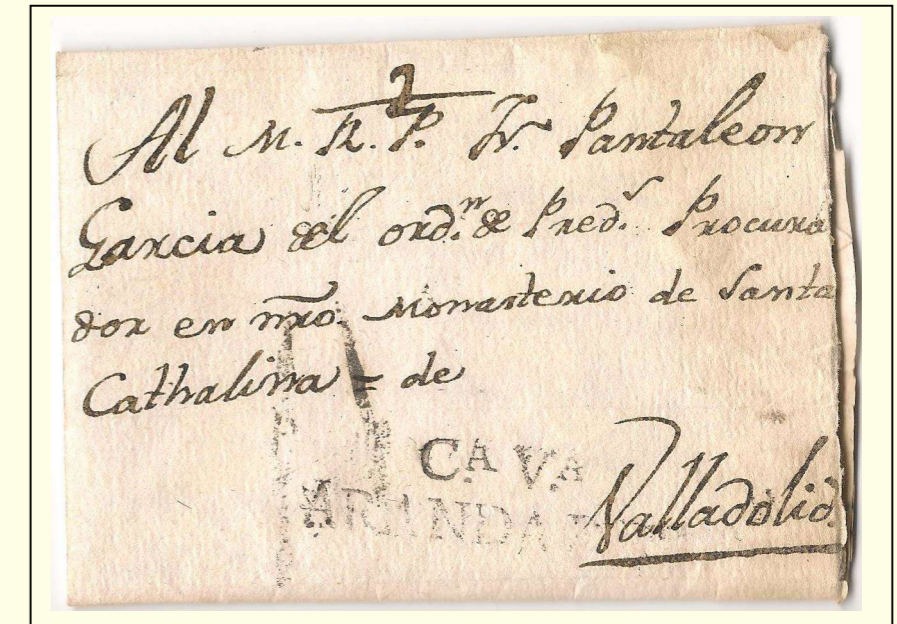 2
Al M. R. P. Fr. Pantaleon
Garcia del ord.n de Pred.s Procura
dor en nro. Monasterio de Santa
Cathalina = de
C.A V.A
ARANDA
Valladolid